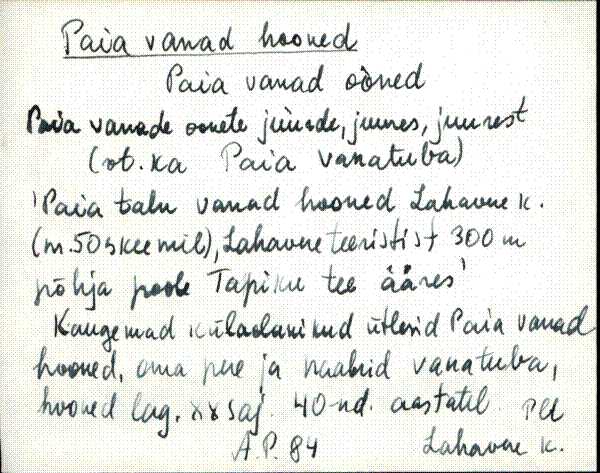 Paia vanad hooned
Paia vanad oòned
Paia vanade oonete juurde, juures, juurest
(öt. ka Paia vanatuba)
'Paia talu vanad hooned Lahavere k.
(m. 50 skeemil), Lahavere teeristist 300 m
põhja poole Tapiku tee ääres'
Kaugemad külaelanikud ütlesid Paia vanad
hooned, oma pere ja naabrid vanatuba,
hooned lag. XX saj. 40-nd. aastatel.
A.P. 84 Lahavere k.